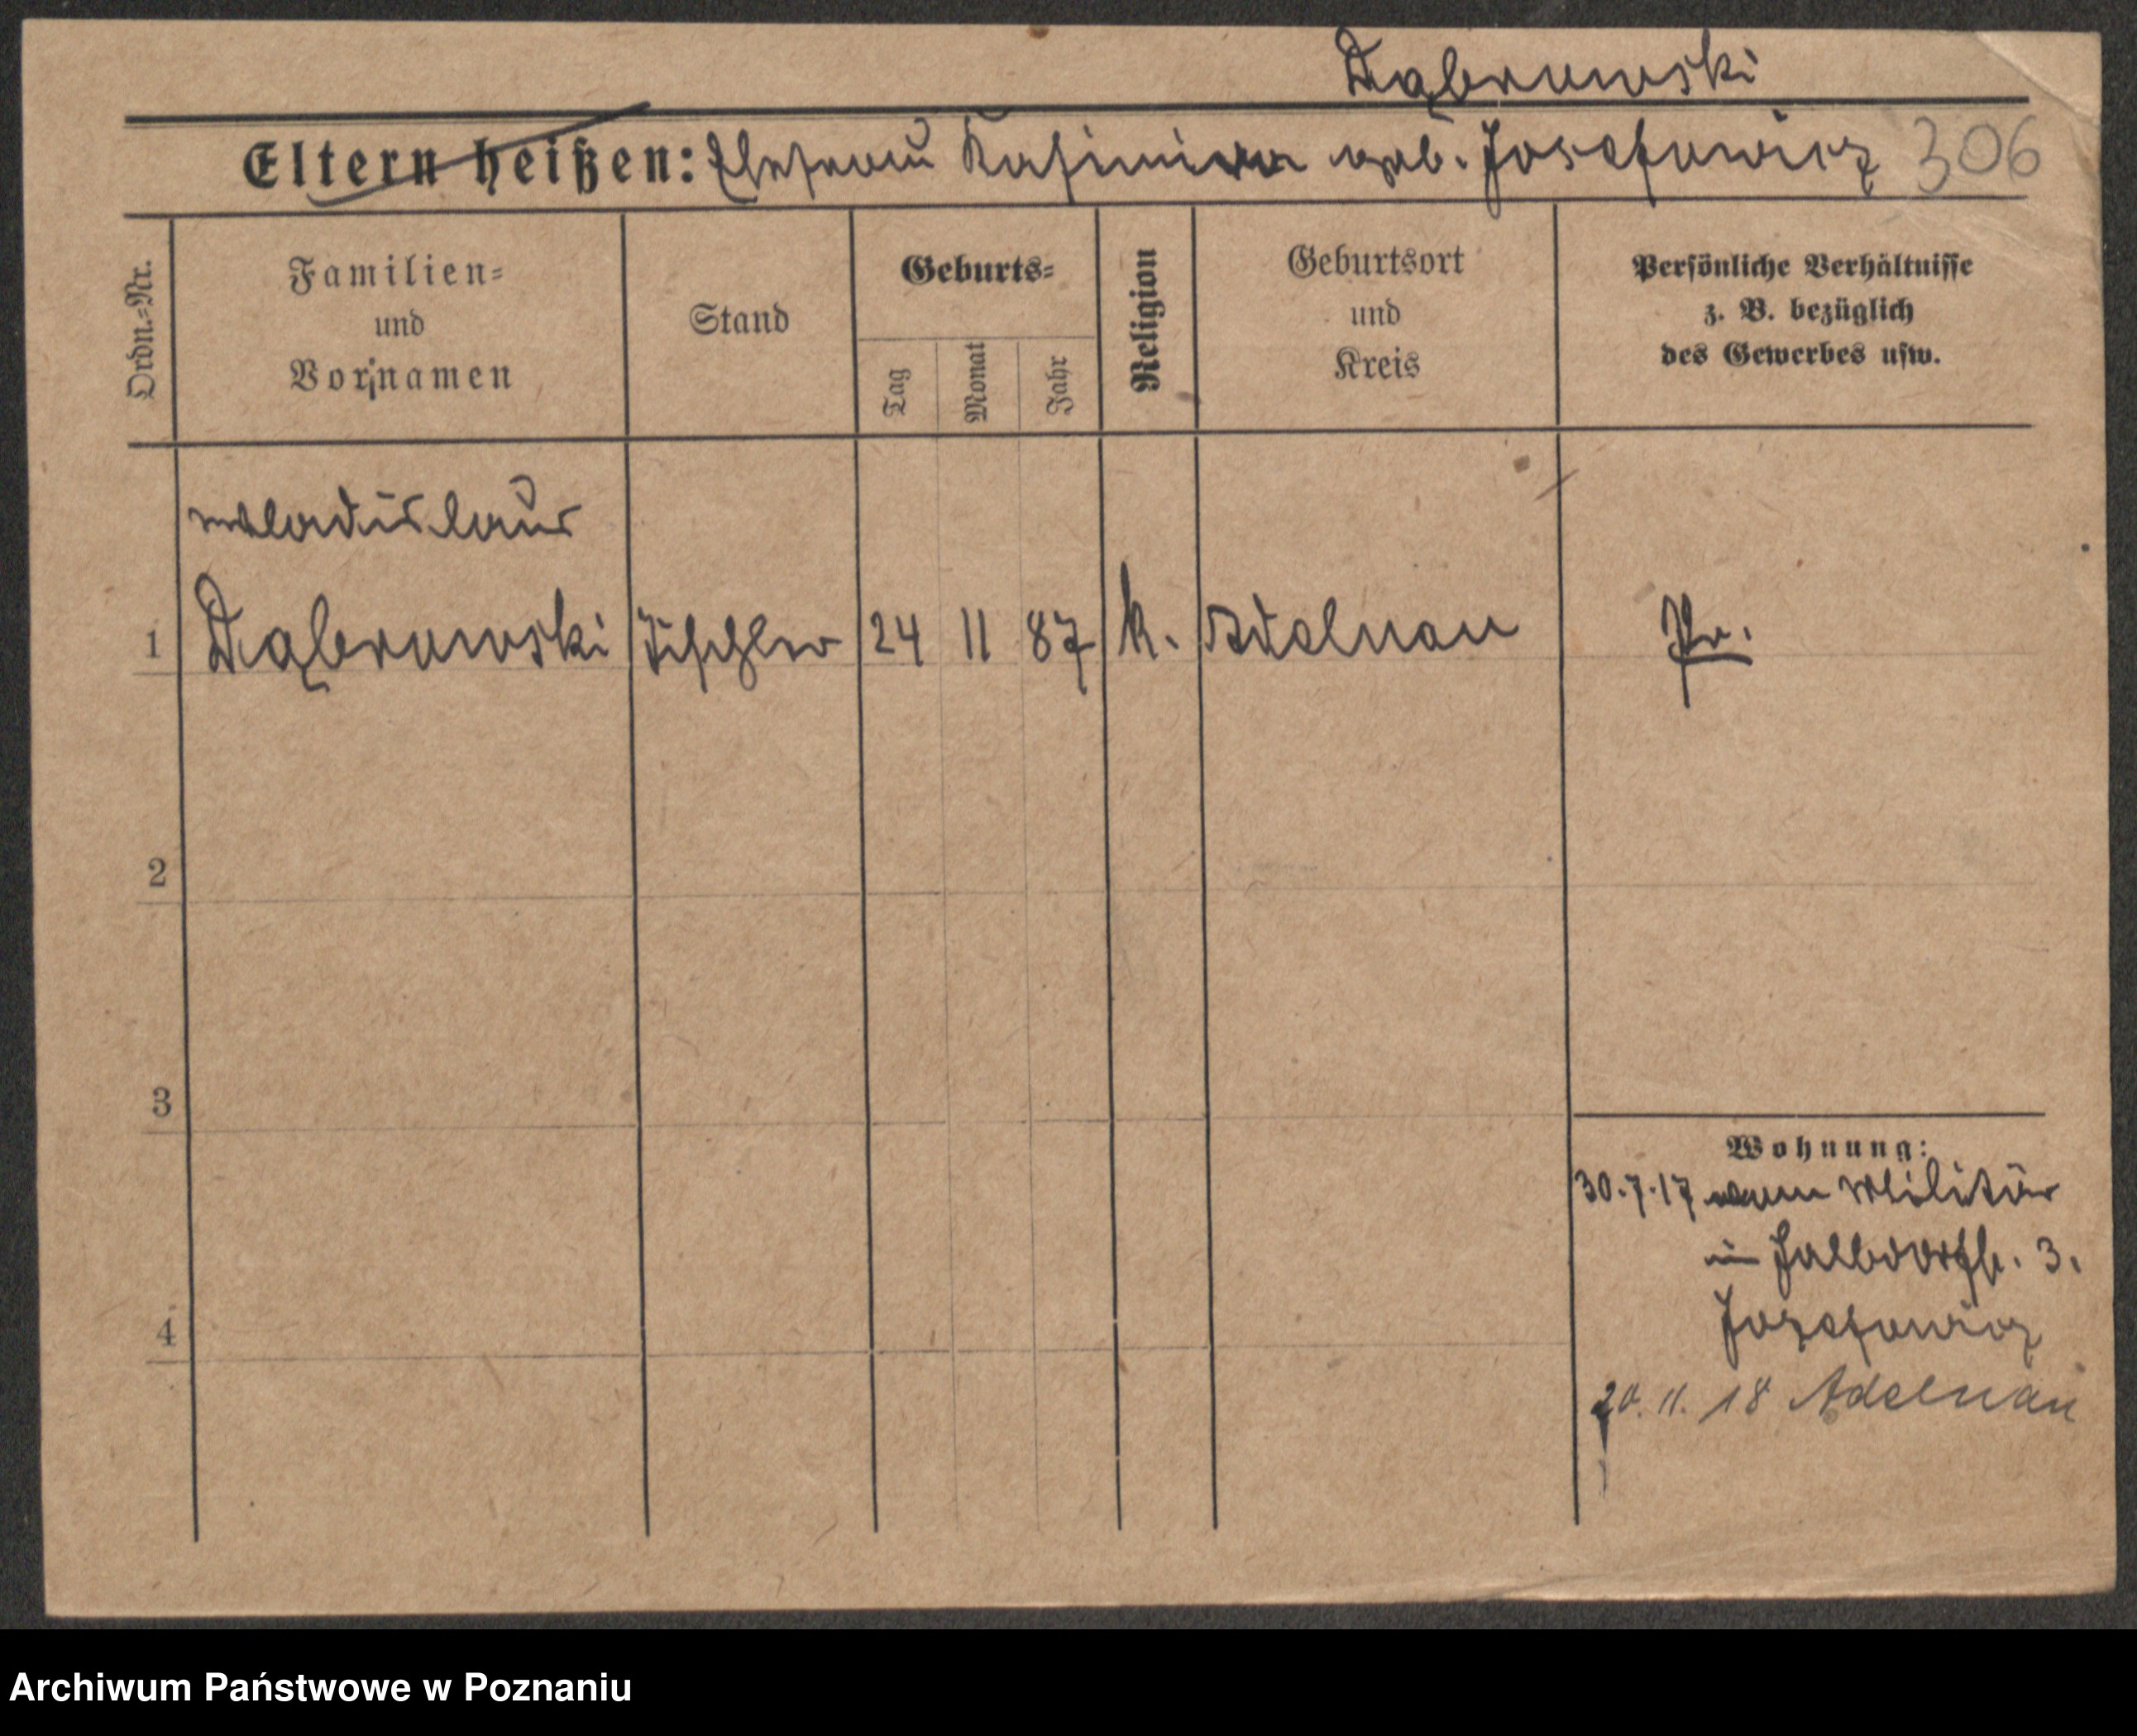 Dąbrowski
Eltern heißen: Ehefrau Kasimira geb. Josefowicz 306
Ordn.=Nr.
Familien=
und
Vornamen
Stand
Geburts=
Tag
Monat
Jahr
Religion
Geburtsort
und
Kreis
Persönliche Verhältnisse
z. B. bezüglich
des Gewerbes usw.
Wladislaus
1 Dąbrowski Tischler 24 11 87 k. Adelnau Pr.
2
3
4
Wohnung:
30.7.17 vom Militär
in 3.
Jozefowicz
20. 11. 18 Adelnau
Archiwum Państwowe w Poznaniu